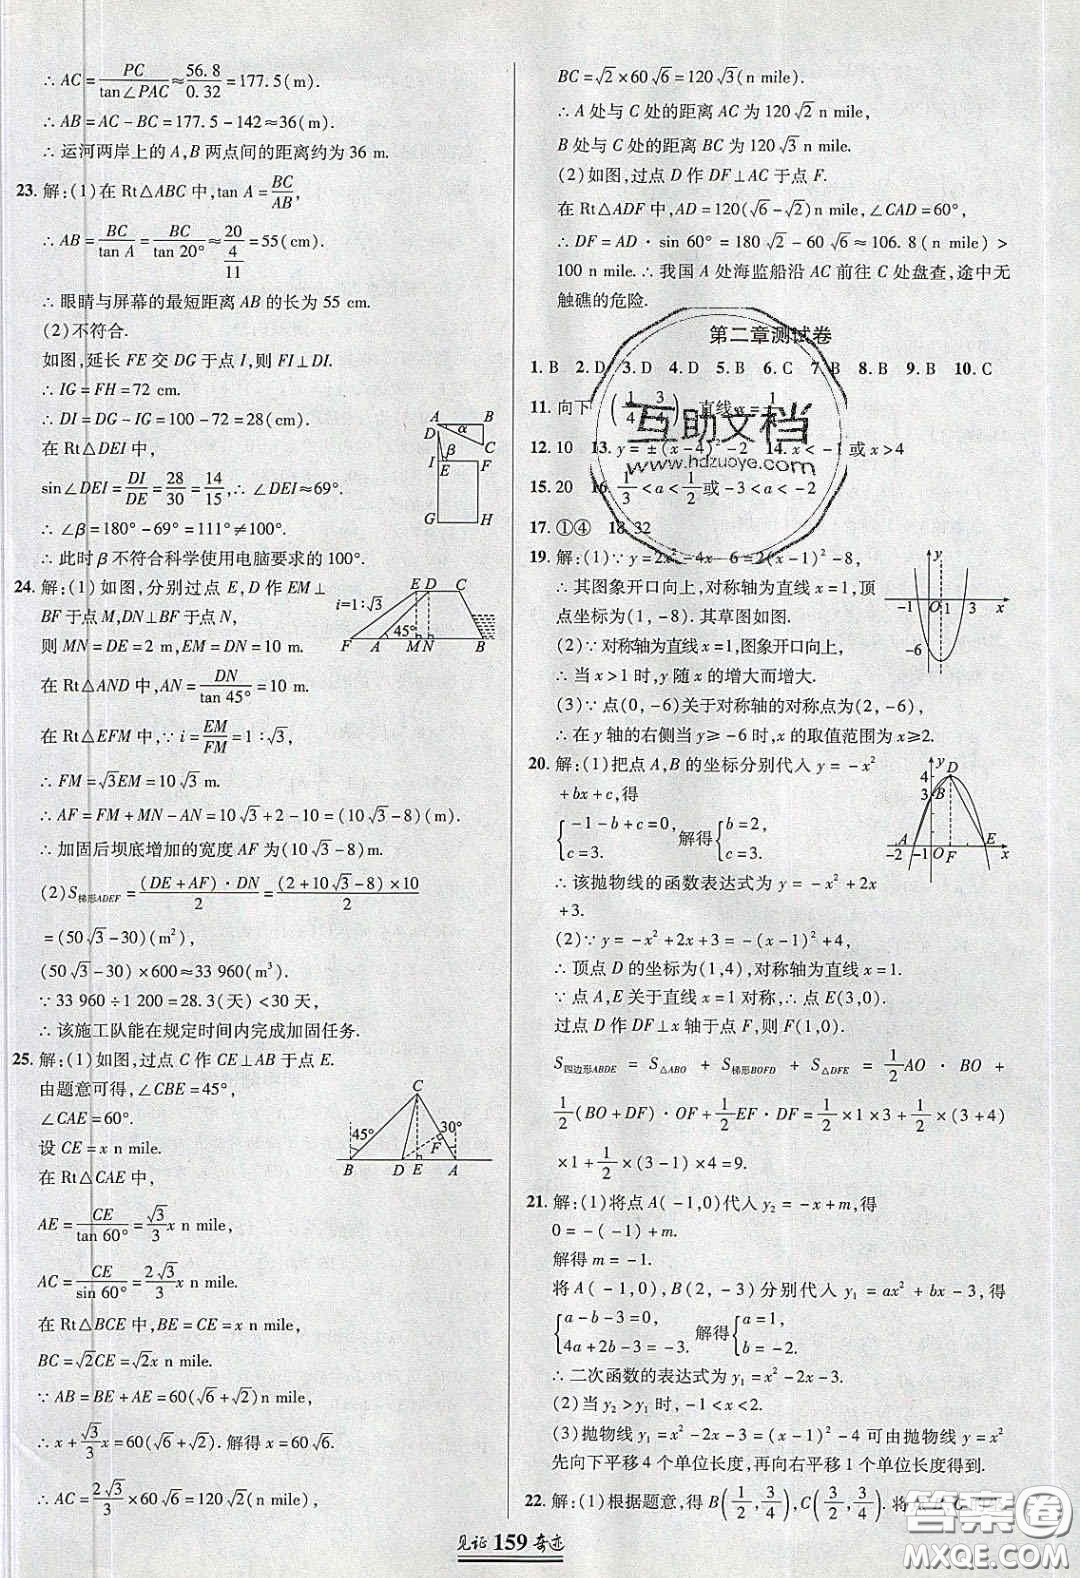 ∴ AC=PC/tan∠PAC≈56.8/0.32=177.5(m).
∴ AB=AC-BC=177.5-142≈36(m).
∴ 运河两岸上的 A,B 两点间的距离约为 36 m.
23. 解:(1)在 Rt△ABC 中,tan A=BC/AB,
∴ AB=BC/tan A=BC/tan 20°≈20/(4/11)=55(cm).
∴ 眼睛与屏幕的最短距离 AB 的长为 55 cm.
(2)不符合.
如图,延长 FE 交 DG 于点 I,则 FI⊥DI.
∴ IG=FH=72 cm.
∴ DI=DG-IG=100-72=28(cm).
在 Rt△DEI 中,
sin∠DEI=DI/DE=28/30=14/15,∴ ∠DEI≈69°.
∴ ∠β=180°-69°=111°≠100°.
∴ 此时 β 不符合科学使用电脑要求的 100°.
A B α D C β I E F G H
24. 解:(1) 如图,分别过点 E,D 作 EM⊥
BF 于点 M,DN⊥BF 于点 N,
则 MN=DE=2 m,EM=DN=10 m.
在 Rt△AND 中,AN=DN/tan 45°=10 m.
在 Rt△EFM 中,∵ i=EM/FM=1∶√3,
∴ FM=√3EM=10√3 m.
∴ AF=FM+MN-AN=10√3+2-10=(10√3-8)(m).
∴ 加固后坝底增加的宽度 AF 为(10√3-8)m.
(2)S梯形ADEF=(DE+AF)·DN/2=(2+10√3-8)×10/2
=(50√3-30)(m²),
(50√3-30)×600≈33 960(m³).
∵ 33 960÷1 200=28.3(天)<30 天,
∴ 该施工队能在规定时间内完成加固任务.
E D C i=1∶√3 45° F A M N B
25. 解:(1)如图,过点 C 作 CE⊥AB 于点 E.
由题意可得,∠CBE=45°,
∠CAE=60°.
设 CE=x n mile.
在 Rt△CAE 中,
AE=CE/tan 60°=√3/3 x n mile,
AC=CE/sin 60°=2√3/3 x n mile.
在 Rt△BCE 中,BE=CE=x n mile,
BC=√2CE=√2x n mile.
∵ AB=BE+AE=60(√6+√2)n mile,
∴ x+√3/3 x=60(√6+√2). 解得 x=60√6.
∴ AC=2√3/3×60√6=120√2(n mile),
C 45° 30° F B D E A
BC=√2×60√6=120√3(n mile).
∴ A 处与 C 处的距离 AC 为 120√2 n mile,
B 处与 C 处的距离 BC 为 120√3 n mile.
(2)如图,过点 D 作 DF⊥AC 于点 F.
在 Rt△ADF 中,AD=120(√6-√2)n mile,∠CAD=60°,
∴ DF=AD·sin 60°=180√2-60√6≈106.8(n mile)>
100 n mile. ∴ 我国 A 处海监船沿 AC 前往 C 处盘查,途中无
触礁的危险.
第二章测试卷
1. B 2. D 3. D 4. D 5. B 6. C 7. B 8. B 9. B 10. C
11. 向下 (1/4, 3/4) 直线 x=1/4
12. 10 13. y=±(x-4)²-2 14. x<-1 或 x>4
15. 20 16. 1/3<a<1/2或-3<a<-2
17. ①④ 18. 32
19. 解:(1)∵ y=2x²-4x-6=2(x-1)²-8,
∴ 其图象开口向上,对称轴为直线 x=1,顶
点坐标为(1,-8). 其草图如图.
(2)∵ 对称轴为直线 x=1,图象开口向上,
∴ 当 x>1 时,y 随 x 的增大而增大.
(3)∵ 点(0,-6)关于对称轴的对称点为(2,-6),
∴ 在 y 轴的右侧当 y≥-6 时,x 的取值范围为 x≥2.
y -1 O 1 3 x -6
20. 解:(1)把点 A,B 的坐标分别代入 y=-x²
+bx+c,得
{-1-b+c=0, c=3. 解得{b=2, c=3.
∴ 该抛物线的函数表达式为 y=-x²+2x
+3.
(2)∵ y=-x²+2x+3=-(x-1)²+4,
∴ 顶点 D 的坐标为(1,4),对称轴为直线 x=1.
∵ 点 A,E 关于直线 x=1 对称,∴ 点 E(3,0).
过点 D 作 DF⊥x 轴于点 F,则 F(1,0).
S四边形ABDE = S△ABO + S梯形BOFD + S△DFE = 1/2AO·BO +
1/2(BO+DF)·OF+1/2EF·DF=1/2×1×3+1/2×(3+4)
×1+1/2×2×4=9.
y 4 D 3 B A E -2 -1 O F x
21. 解:(1)将点 A(-1,0)代入 y₂=-x+m,得
0=-(-1)+m.
解得 m=-1.
将 A(-1,0),B(2,-3)分别代入 y₁=ax²+bx-3,得
{a-b-3=0, 4a+2b-3=-3. 解得{a=1, b=-2.
∴ 二次函数的表达式为 y₁=x²-2x-3.
(2)当 y₂>y₁ 时,-1<x<2.
(3)抛物线 y₁=x²-2x-3=(x-1)²-4 可由抛物线 y=x²
先向下平移 4 个单位长度,再向右平移 1 个单位长度得到.
22. 解:(1)根据题意,得 B(1/2, 3/4),C(3/2, 3/4). 将
见证 159 奇迹
互助文档
www.hdzuoye.com
答案圈
MXQE.COM